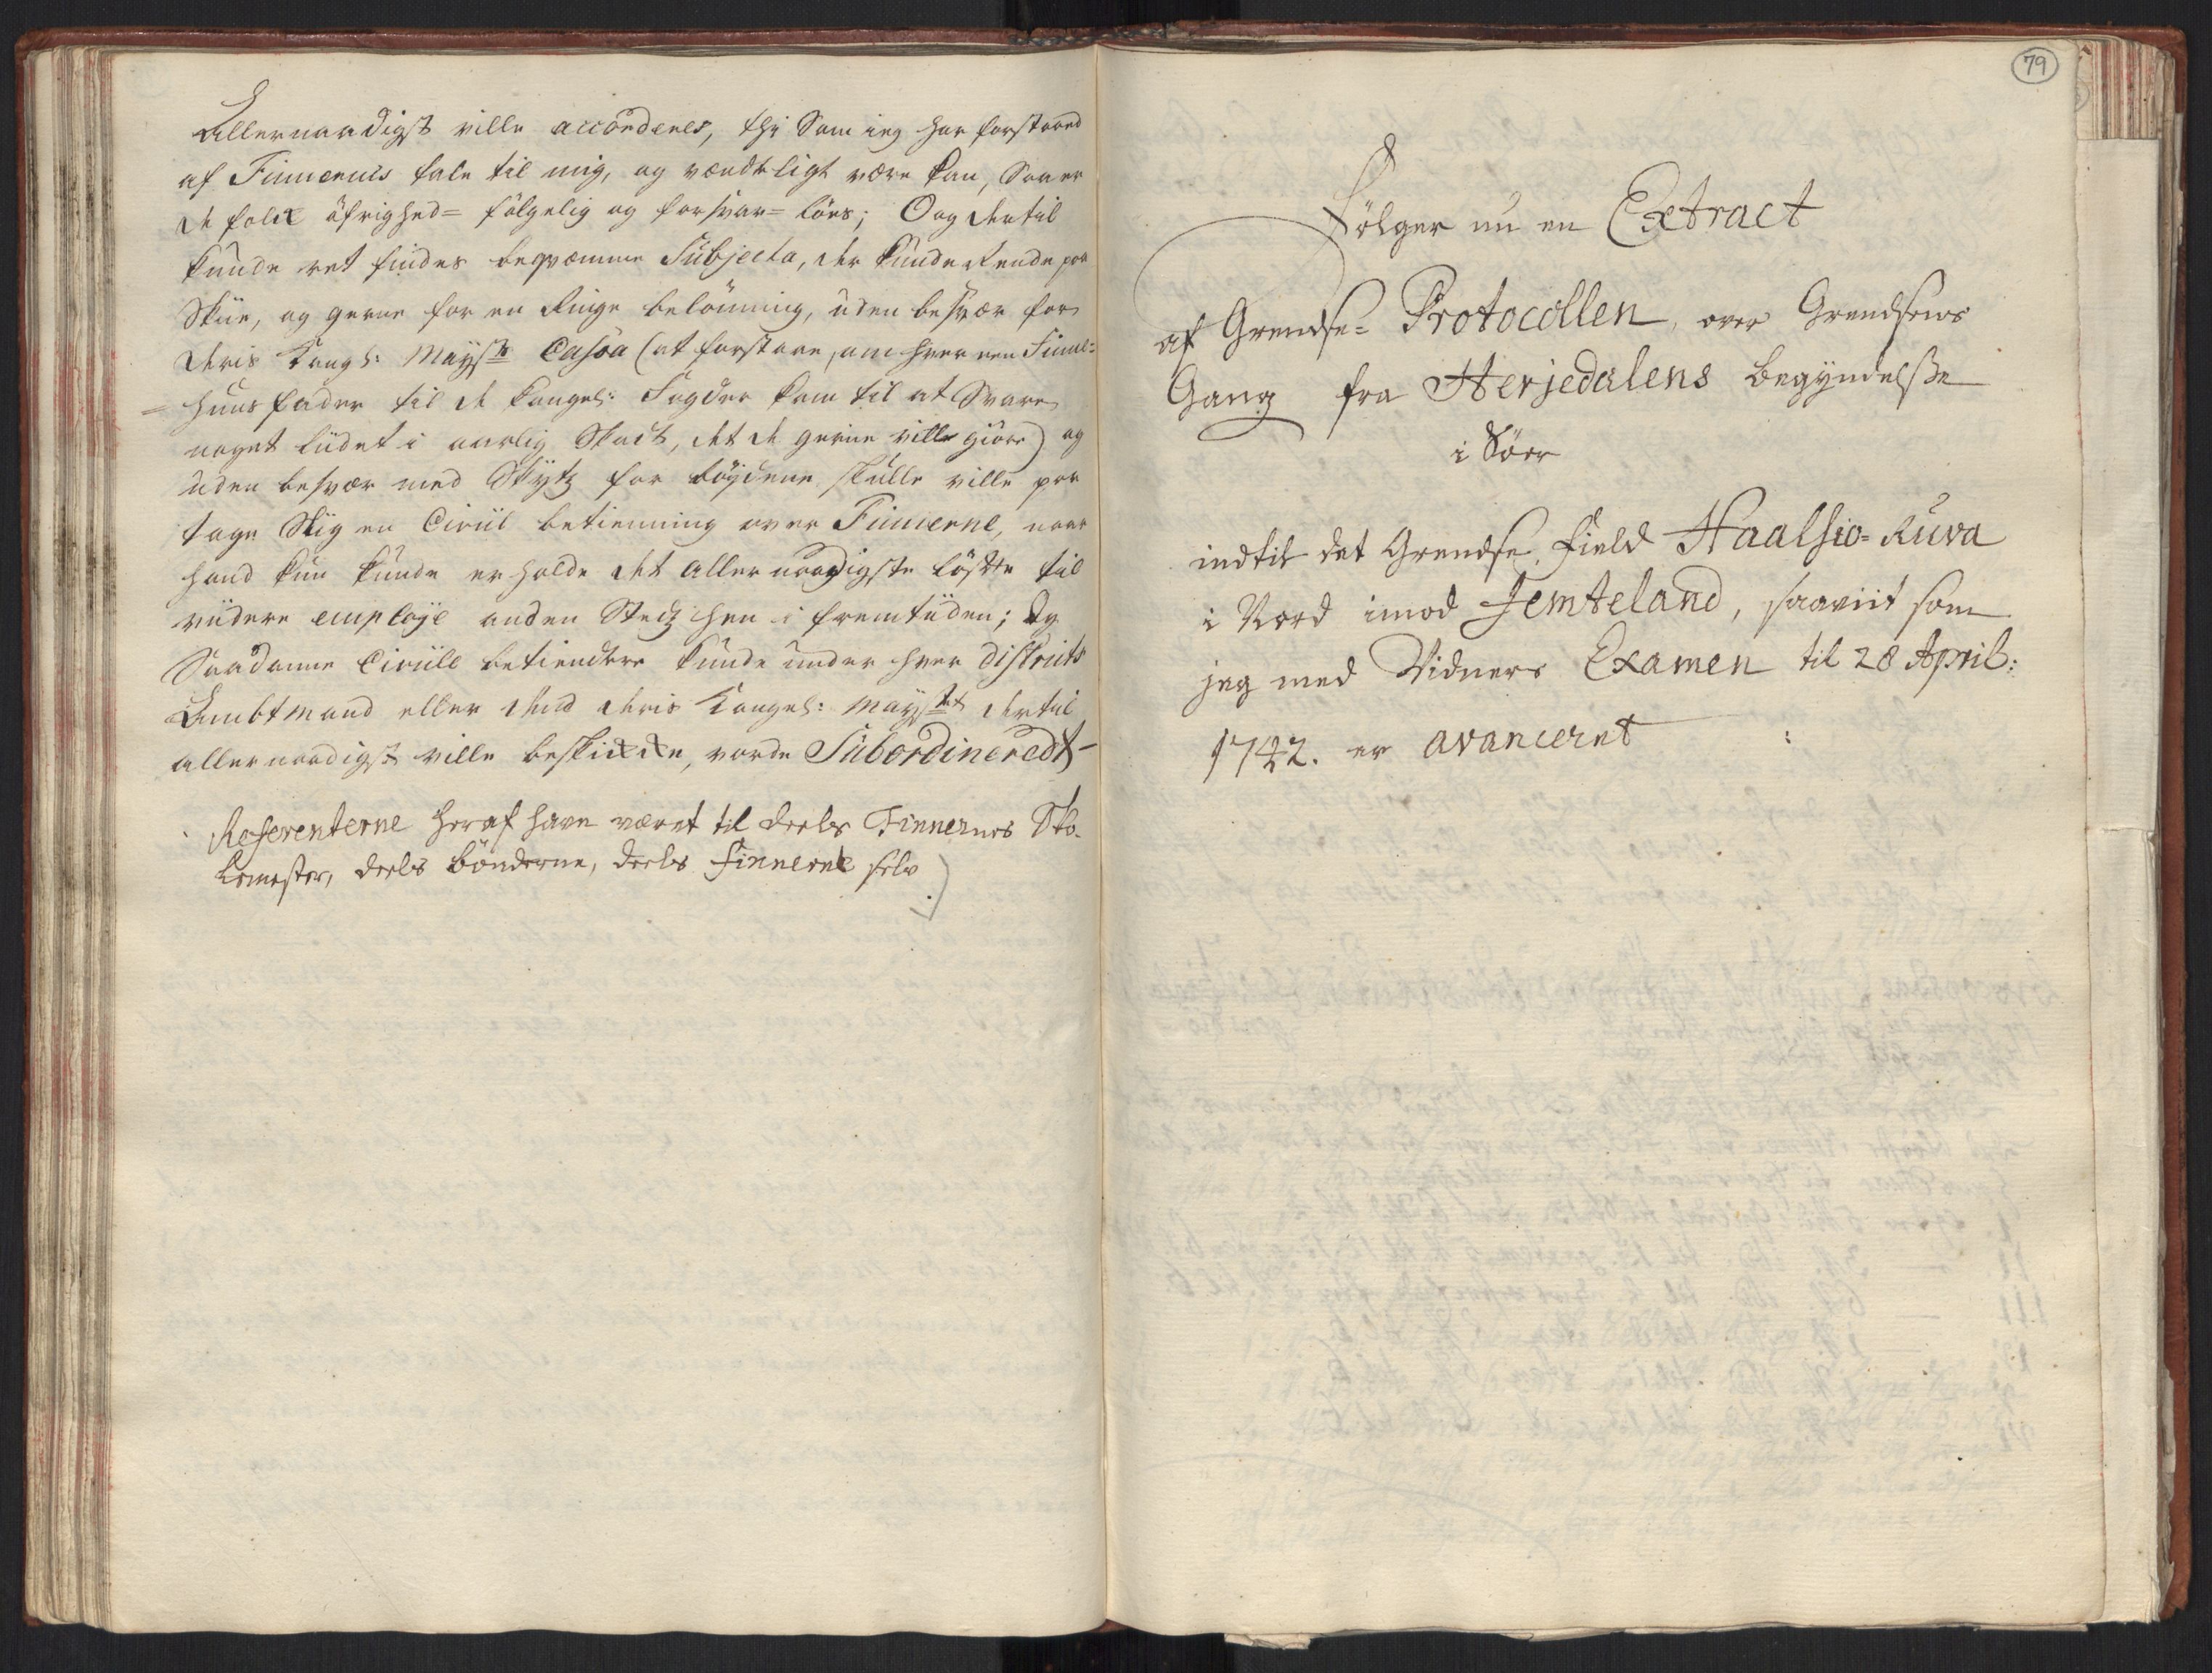 Allernaadigst ville accorderes, thi Som ieg har forstaaed
af Finnernes tale til mig, og vendtligt være kan, Saa er
de folck øfrighed= følgelig og forsvar= løes; Og dertil
kunde vet findes beqvæmme Subjecta, der kunde Rende paa
Skie, og gerne for en Ringe belønning, uden besvær for
deris Kongl: Mayst: Cassa (at forstaae, om hver een Finne=
=huusfader til de kongel: Fogder kom til at Svare
noget lidet i aarlig Skatt, det de gerne ville giøre) og
uden besvær med Skytz for bøydene skulle ville paa
tage Sig en Civiil betienning over Finnerne, naar
hand kun kunde erholde det allernaadigste løfte til
viidere employe anden Stedz hen i fremtiiden; Og
Saadanne Civiile betiendtere kunde under hver districts
Ambtmand eller hvad deris Kongel: Mayst: dertil
allernaadigst ville beskicke, vorde Subordineredt-
Referenterne heraf have været til deels Finnernes Sko-
lemester, deels bønderne, deels finnerne selv.)
79
Følger nu en Extract
af Grendse= Protocollen, over Grendsens
Gang fra Herjedalens begyndelsse
i Søer
indtil det Grendse Field Haalsio=Ruva
i Nord imod Jemteland, saaviit som
jeg med Vidners Examen til 28 April:
1742. er avanceret :